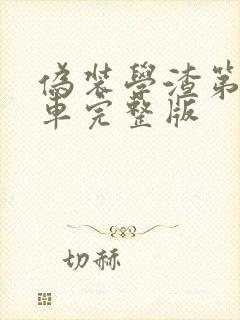 偽裝學渣第
車完整版
切赫